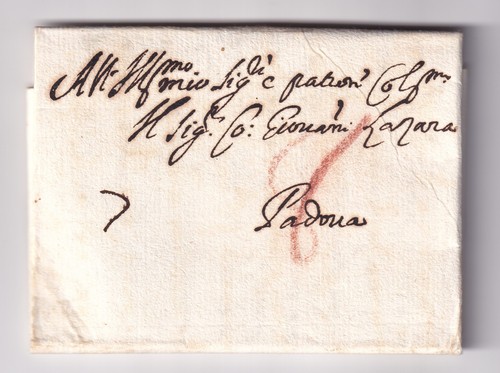 All. Ill.mo mio Sig.r e patron Col.mo
Il Sig.r Co: Giouani Lazara
Padoua
8